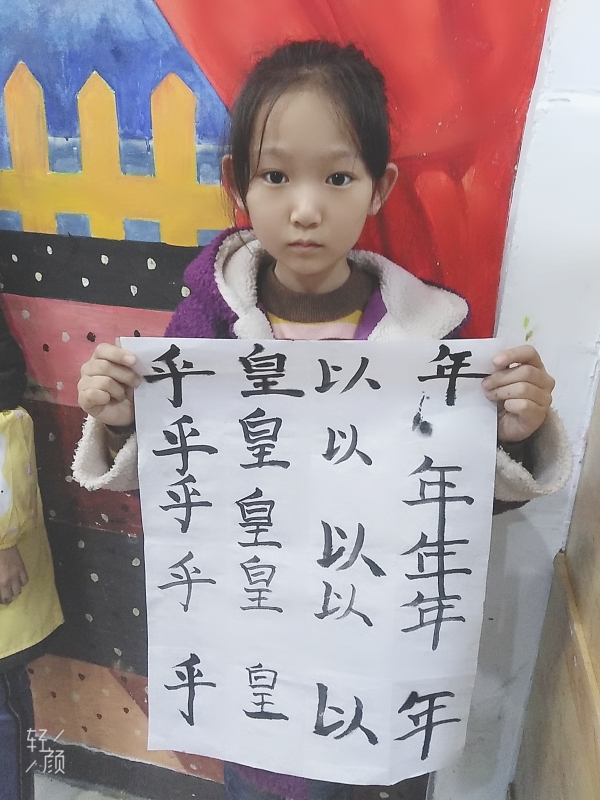 年年年年年
以以以以以
皇皇皇皇皇
乎乎乎乎乎
轻颜